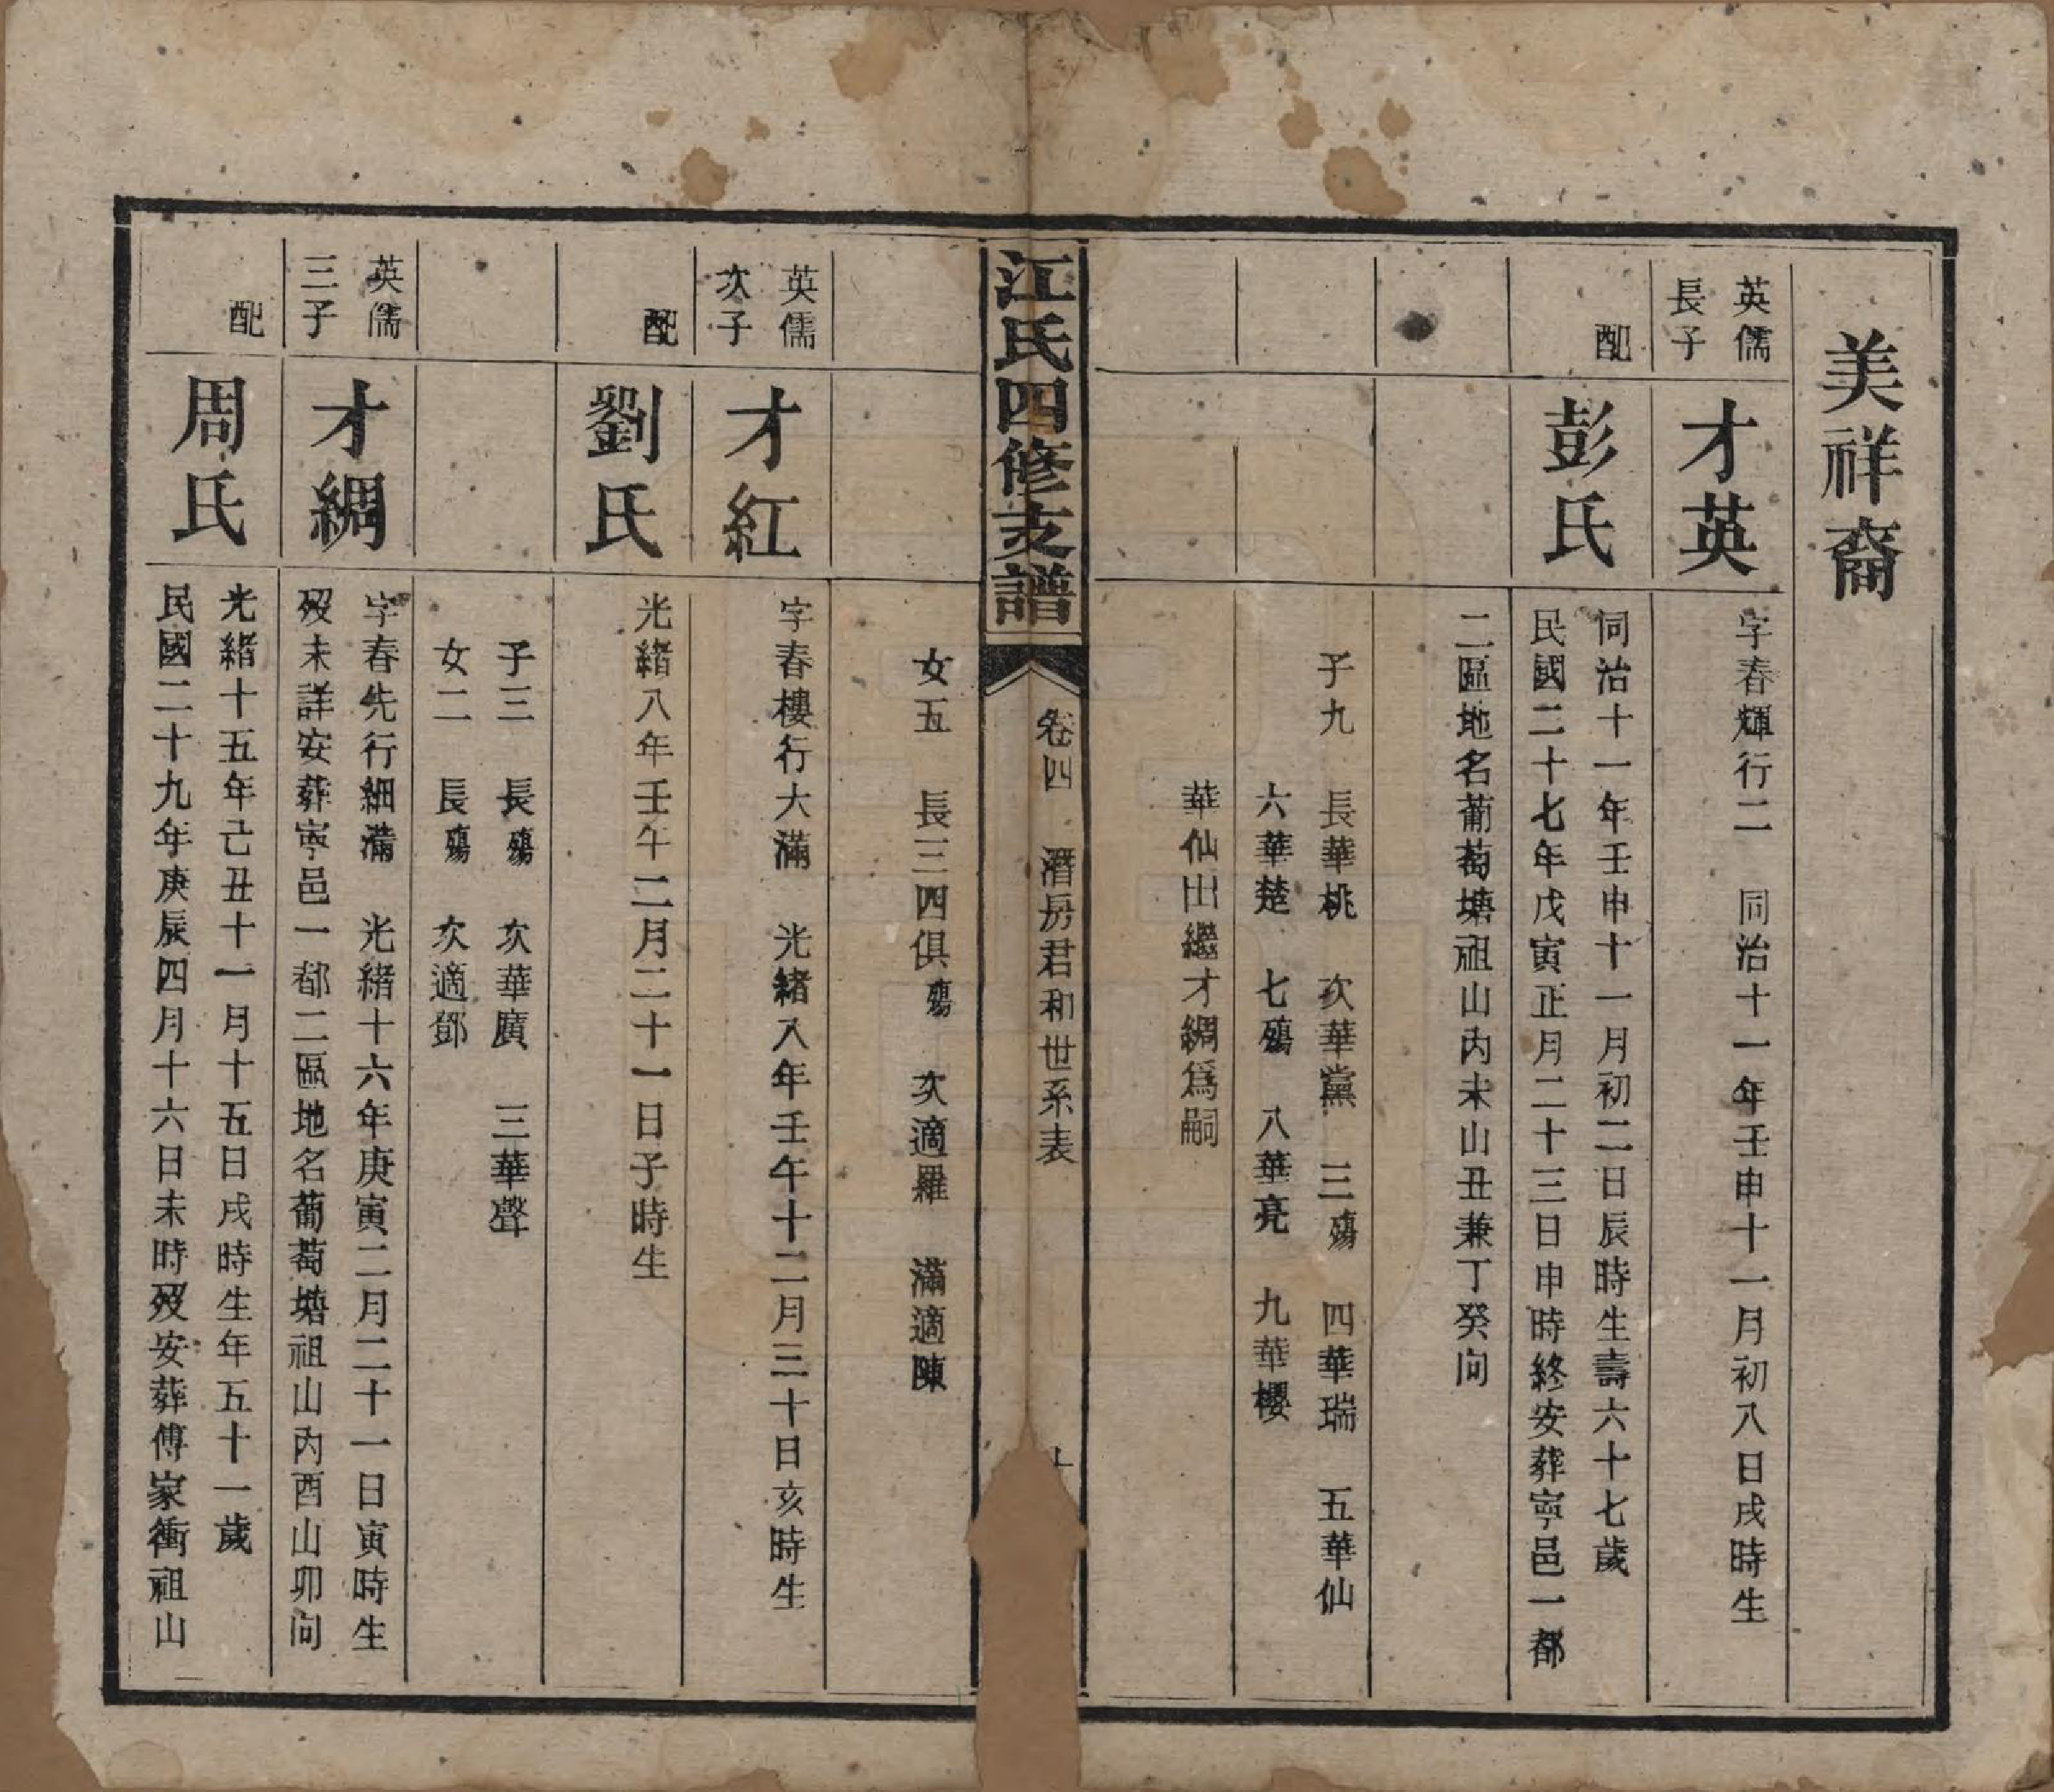 美祥裔
英儒
長子
才英
字春輝行二 同治十一年壬申十一月初八日戌時生
配
彭氏
同治十一年壬申十一月初二日辰時生壽六十七歲
民國二十七年戊寅正月二十三日申時終安葬寧邑一都
二區地名葡萄塘祖山內未山丑兼丁癸向
子九 長華桃 次華黨 三殤 四華瑞 五華仙
六華楚 七殤 八華亮 九華櫻
華仙出繼才綢爲嗣
江氏四修支譜
卷四 濳房君和世系表
女五 長三四俱殤 次適羅 滿適陳
英儒
次子
才紅
字春樓行大滿 光緒八年壬午十二月三十日亥時生
配
劉氏
光緒八年壬午二月二十一日子時生
子三 長殤 次華廣 三華聲
女二 長殤 次適鄧
英儒
三子
才綢
字春先行細滿 光緒十六年庚寅二月二十一日寅時生
歿未詳安葬寧邑一都二區地名葡萄塘祖山內酉山卯向
配
周氏
光緒十五年己丑十一月十五日戌時生年五十一歲
民國二十九年庚辰四月十六日未時歿安葬傅家衝祖山